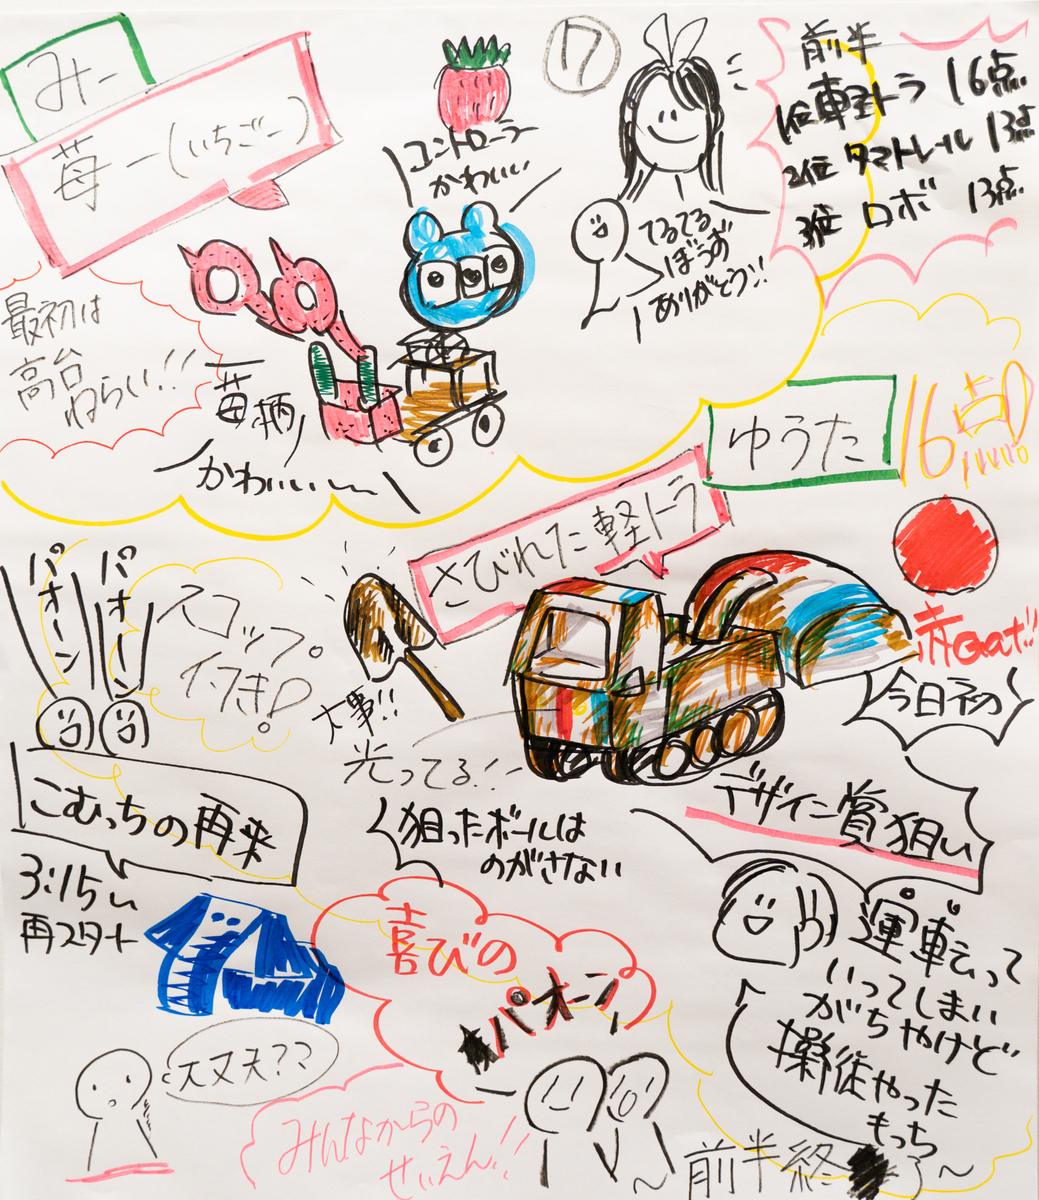 みー
苺ー(いちごー)
コントローラー
かわいい
7
てるてる
ぼうず
ありがとう!!
前半
1位 軽トラ 16点
2位 タマトレール 13点
3位 ロボ 13点
最初は
高台
ねらい!!
苺柄
かわいぃー
ゆうた
16点
さびれた軽トラ
パオーン
パオーン
スコップ。
大事!!
光ってる!!
赤Get!!
今日初の
デザイン賞狙い
こむっちの再来
3:15い
再スタート
狙ったボールは
のがさない
喜びの
パオーン
運車云って
いってしまい
がちやけど
操縦やった
もっち
大丈夫??
みんなからの
せいえん!!
前半終了〜